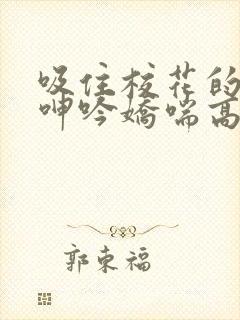 吸住校花的
呻吟娇喘高
郭东福